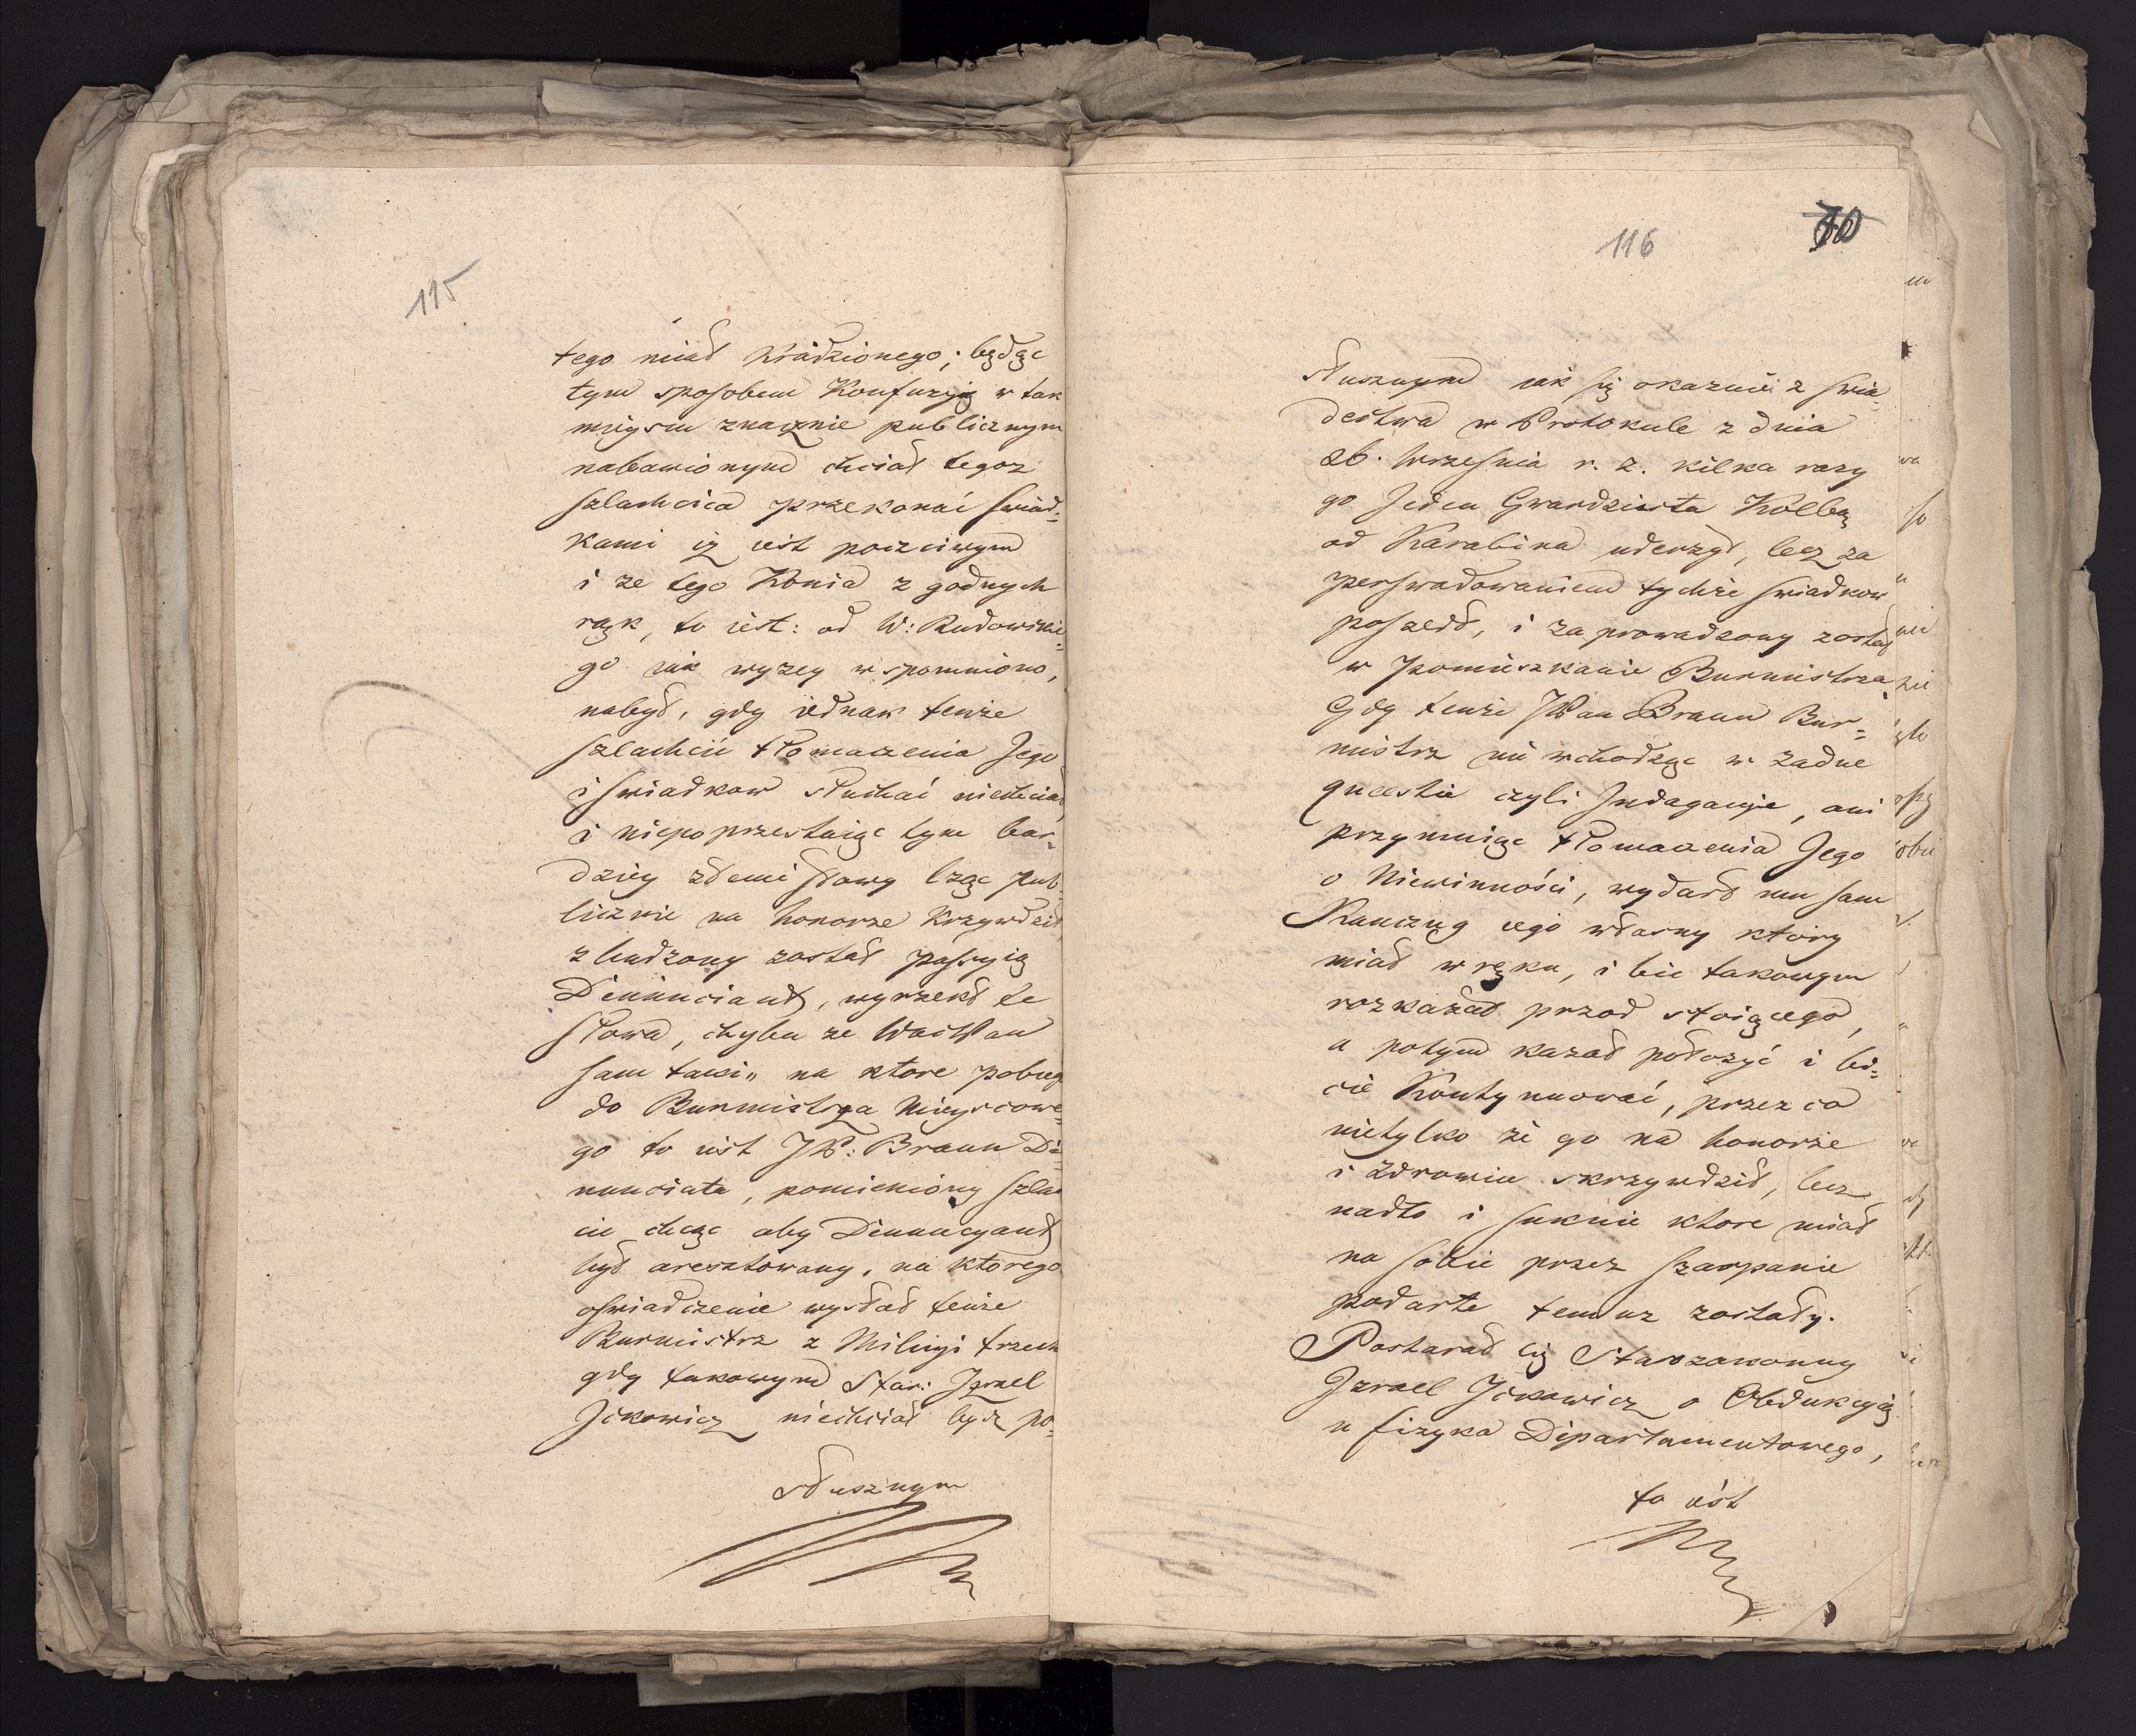 115
tego miał kradzionego; będąc
tym sposobem Konfuzyią w tak
mieyscu znacznie publicznym
nabawionym chciał tegoz
szlachcica przekonać swiad=
kami iz iest poczciwym
i ze tego Konia z godnych
rąk, to iest: od W: Rudowskie=
go iak wyzey wspomniono,
nabył, gdy iednak tenże
szlachcic tłomaczenia Jego
i swiadkow słuchać niechciał
i niepoprzestaiąc tym bar=
dziey złemi słowy lząc pub=
licznie na honorze Krzywdził
zbudzony został passyią
Denunciant, wyrzekł te
słowa, chyba ze WacPan
sam taki„ na ktore pobiegł
do Burmistrza Mieyscowe=
go to iest JP: Braun De=
nunciata, pomieniony szlach
cic chcąc aby Denuncyant
był aresztowany, na ktorego
oswiadczenie wysłał tenże
Burmistrz z Milicyi trzech
gdy takowym Star: Izrael
Ickowicz niechciał bydz po=
słusznym
116
70
słusznym iak się okazuie z swia=
dectwa w Protokule z dnia
26. Wrzesnia r. z. kilka razy
go Jeden Gwardzista Kolbą
od Karabina uderzył, lecz za
perswadowaniem tychże swiadkow
poszedł, i zaprowadzony został
w Pomieszkanie Burmistrza,
Gdy tenże JPan Braun Bur=
mistrz nie wchodząc w zadne
questie czyli Indagacyje, ani
przymuiąc tłomaczenia Jego
o Niewinności, wydarł mu sam
Kanczug iego własny ktory
miał w ręku, i bic takowym
rozkazał przod stoiącego,
a potym kazał położyć i bi=
cie Kontynuować, przez co
nietylko że go na honorze
i zdrowiu skrzywdził, lecz
nadto i suknie ktore miał
na sobie przez szarpanie
podarte temuz zostały.
Postarał się Starozakonny
Izrael Ickowicz o Obdukcyią
u fizyka Departamentowego,
to iest